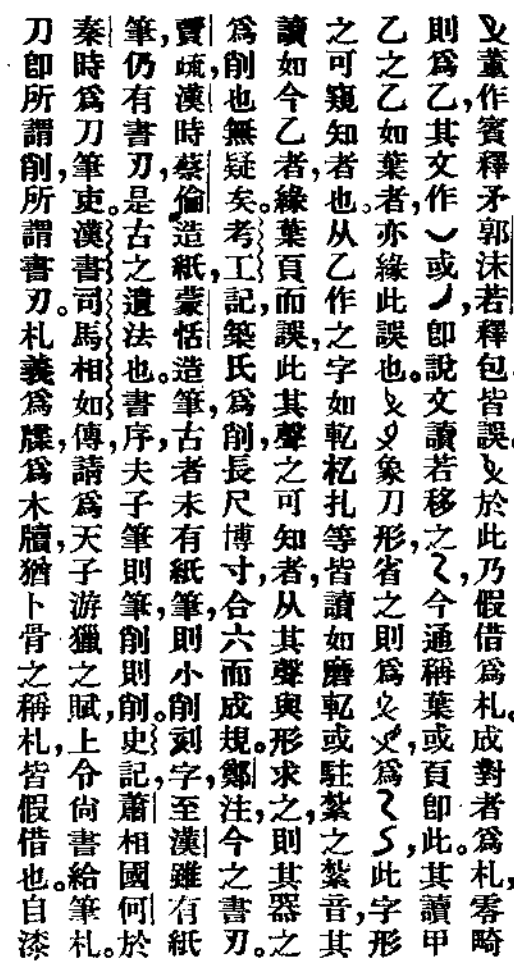 董作賓釋矛郭沫若釋包皆誤。於此乃假借爲札。成對者。爲札,零畸
則爲乙,其文作或,卽說文讀若移之乁,今通稱葉或頁卽此。其讀甲
乙之乙如葉者,亦緣此誤也。象刀形,省之則爲爲,此字形
之可窺知者也。从乙作之字如軋札扎等,皆讀如磨軋或駐紮之紮音,其
讀如今乙者,緣葉頁而誤,此其聲之可知者,从其聲與形求之,則其器之
爲削也無疑矣。考工記,築氏爲削,長尺博寸,合六而成規。鄭注,今之書刃。
賈疏,漢時蔡倫造紙,蒙恬造筆,古者未有紙筆,則小削刻字,至漢雖有紙
筆,仍有書刃,是古之遺法也。書序,夫子筆則筆,削則削。史記蕭相國何於
秦時爲刀筆吏。漢書司馬相如傳,請爲天子游獵之賦,上令尙書給筆札。
刀卽所謂削,所謂書刃。札義爲牒,爲木牘,猶卜骨之稱札,皆假借也。自漆